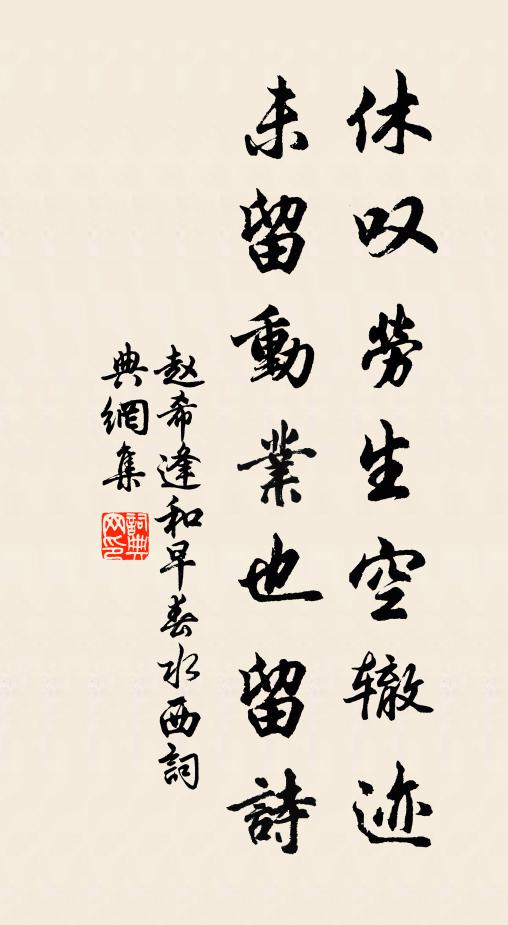 休叹勞生空辙迹
未留動業也留詩
赵希逢和早春水西詞
典網集
詞典网印